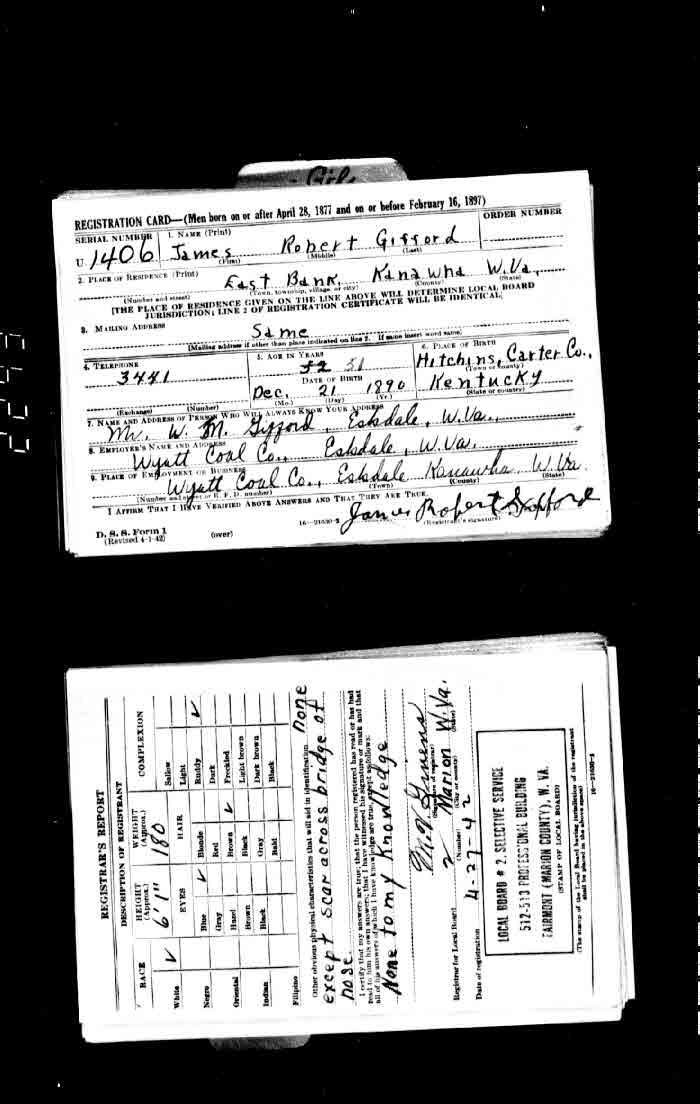 Gif
REGISTRATION CARD—(Men born on or after April 28, 1877 and on or before February 16, 1897)
SERIAL NUMBER 1. NAME (Print) ORDER NUMBER
U 1406 James Robert Gifford
(First) (Middle) (Last)
2. PLACE OF RESIDENCE (Print)
East Bank Kanawha W.Va.
(Number and street) (Town, township, village, or city) (County) (State)
[THE PLACE OF RESIDENCE GIVEN ON THE LINE ABOVE WILL DETERMINE LOCAL BOARD
JURISDICTION; LINE 2 OF REGISTRATION CERTIFICATE WILL BE IDENTICAL]
3. MAILING ADDRESS
Same
[Mailing address if other than place indicated on line 2. If same insert word same]
4. TELEPHONE 5. AGE IN YEARS 6. PLACE OF BIRTH
3441 52 51 Hitchins, Carter Co.,
(Town or county)
DATE OF BIRTH
Dec. 21 1890 Kentucky
(Exchange) (Number) (Mo.) (Day) (Yr.) (State or country)
7. NAME AND ADDRESS OF PERSON WHO WILL ALWAYS KNOW YOUR ADDRESS
Mr. W. M. Gifford, Eskdale, W.Va.,
8. EMPLOYER'S NAME AND ADDRESS
Wyatt Coal Co., Eskdale, W.Va.
9. PLACE OF EMPLOYMENT OR BUSINESS
Wyatt Coal Co., Eskdale Kanawha W.Va.
(Number and street or R. F. D. number) (Town) (County) (State)
I AFFIRM THAT I HAVE VERIFIED ABOVE ANSWERS AND THAT THEY ARE TRUE.
James Robert Gifford
D. S. S. Form 1 16—21630-2 (Registrant's signature)
(Revised 4-1-42) (over)
REGISTRAR'S REPORT
DESCRIPTION OF REGISTRANT
RACE HEIGHT (Approx.) WEIGHT (Approx.) COMPLEXION
6'1" 180
EYES HAIR
White ✓ Blue ✓ Blonde Sallow
Light
Negro Gray Red Ruddy ✓
Dark
Oriental Hazel Brown ✓ Freckled
Brown Black Light brown
Indian Black Gray Dark brown
Bald Black
Filipino
Other obvious physical characteristics that will aid in identification none
except scar across bridge of
nose.
I certify that my answers are true; that the person registered has read or has had
read to him his own answers; that I have witnessed his signature or mark and that
all of his answers of which I have knowledge are true, except as follows:
None to my Knowledge
(Signature of registrar)
Registrar for Local Board 2 Marion W.Va.
(Number) (City or county) (State)
Date of registration 4-27-42
LOCAL BOARD # 2. SELECTIVE SERVICE
512-513 PROFESSIONAL BUILDING
FAIRMONT (MARION COUNTY), W. VA.
(STAMP OF LOCAL BOARD)
(The stamp of the Local Board having jurisdiction of the registrant
shall be placed in the above space)
16—21630-1